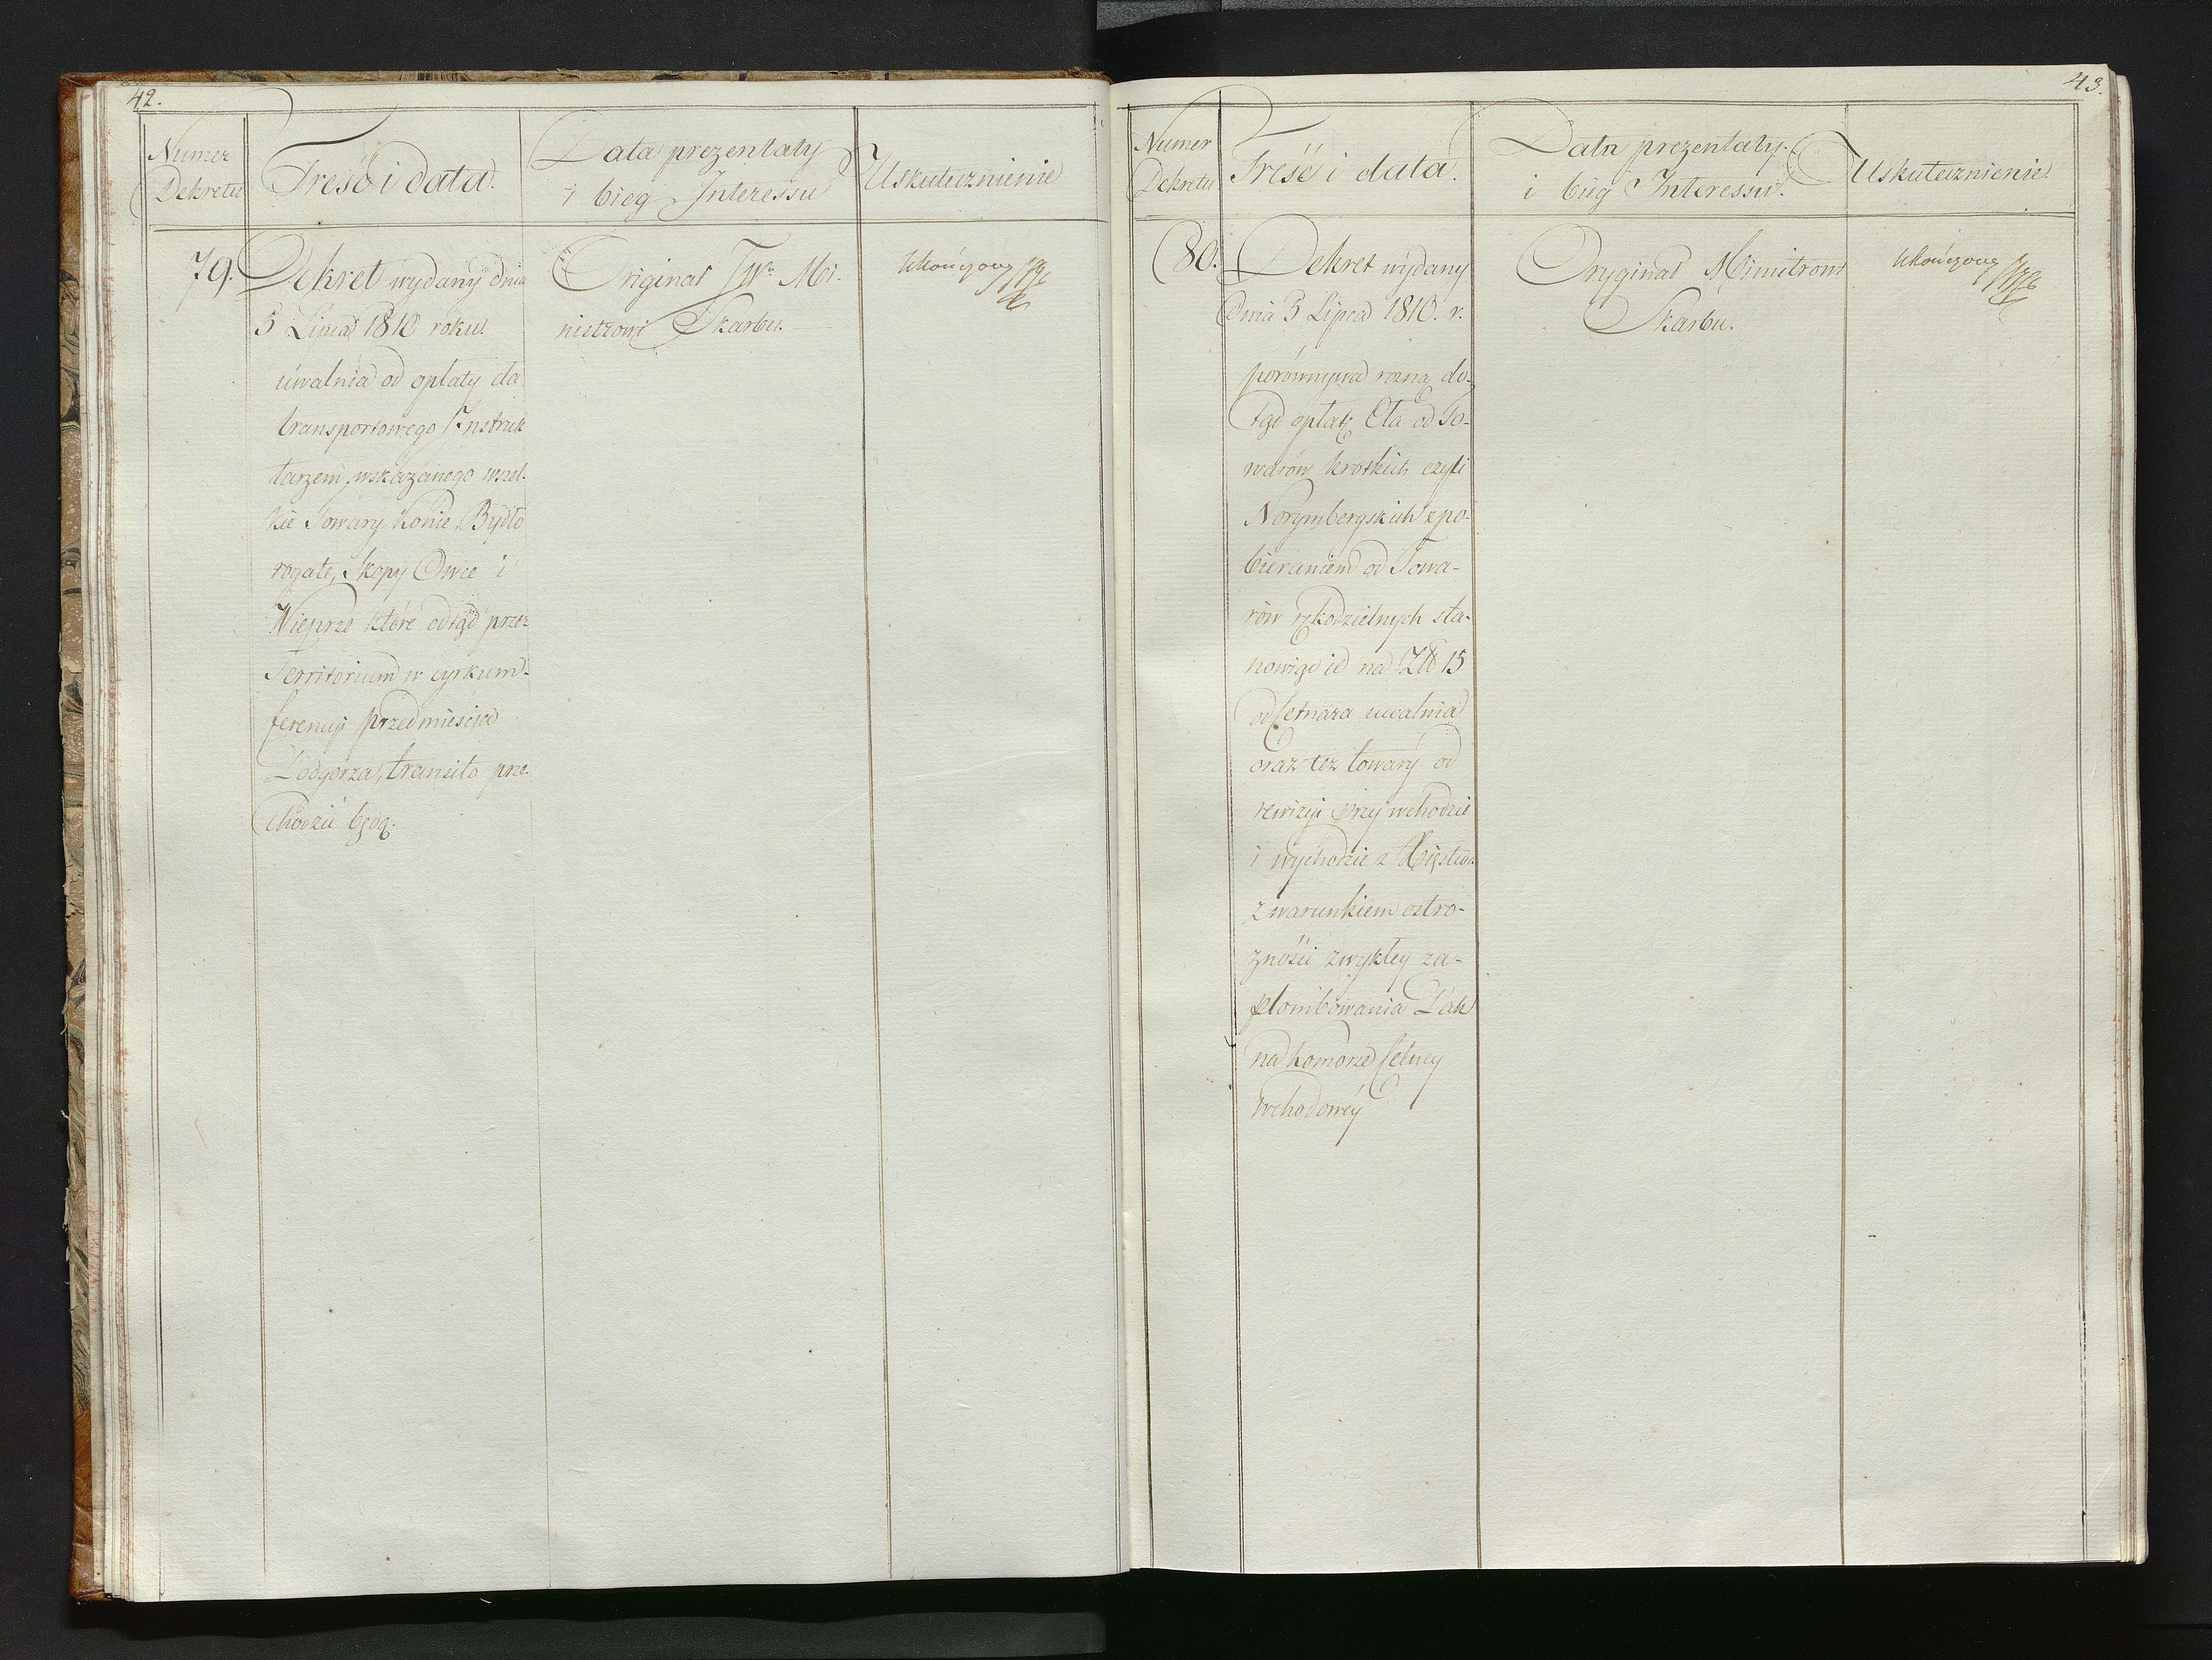 42.
Numer
Dekretu
Treść i data.
Data prezentaty
i bieg Interessu
Uskutecznienie
79.
Dekret wydany dnia
5 Lipca 1810 roku.
uwalnia od opłaty cła
transportowego Instruk
tarzem wskazanego wszel-
kie Towary, Konie, Bydło
rogate, Skopy Owce i
Wieprze które odtąd przez
Territorium w cyrkum-
ferencyi przedmieścia
Podgorza, transito prze-
chodzić będą.
Originał JWu Mi-
nistrowi Skarbu.
Ukończony
43.
Numer
Dekretu
Treść i data.
Data prezentaty.
i bieg Interessu.
Uskutecznienie.
80.
Dekret wydany
dnia 5 Lipca 1810. r.
porównywa rozną do-
tąd opłatę Cła od To-
warów krotkich czyli
Norymbergskich z po-
bieraniem od Towa-
rów rękodzielnych sta-
nowiąc ie na Zł 15
od Cetnara uwalnia
oraz też towary od
rewizyi przy wchodzie
i wychodzie z Xięstwa
z warunkiem ostro-
zności zwykłey za-
plombowania Pak
na komorze Celney
wchodowey
Oryginał Ministrowi
Skarbu.
Ukończony